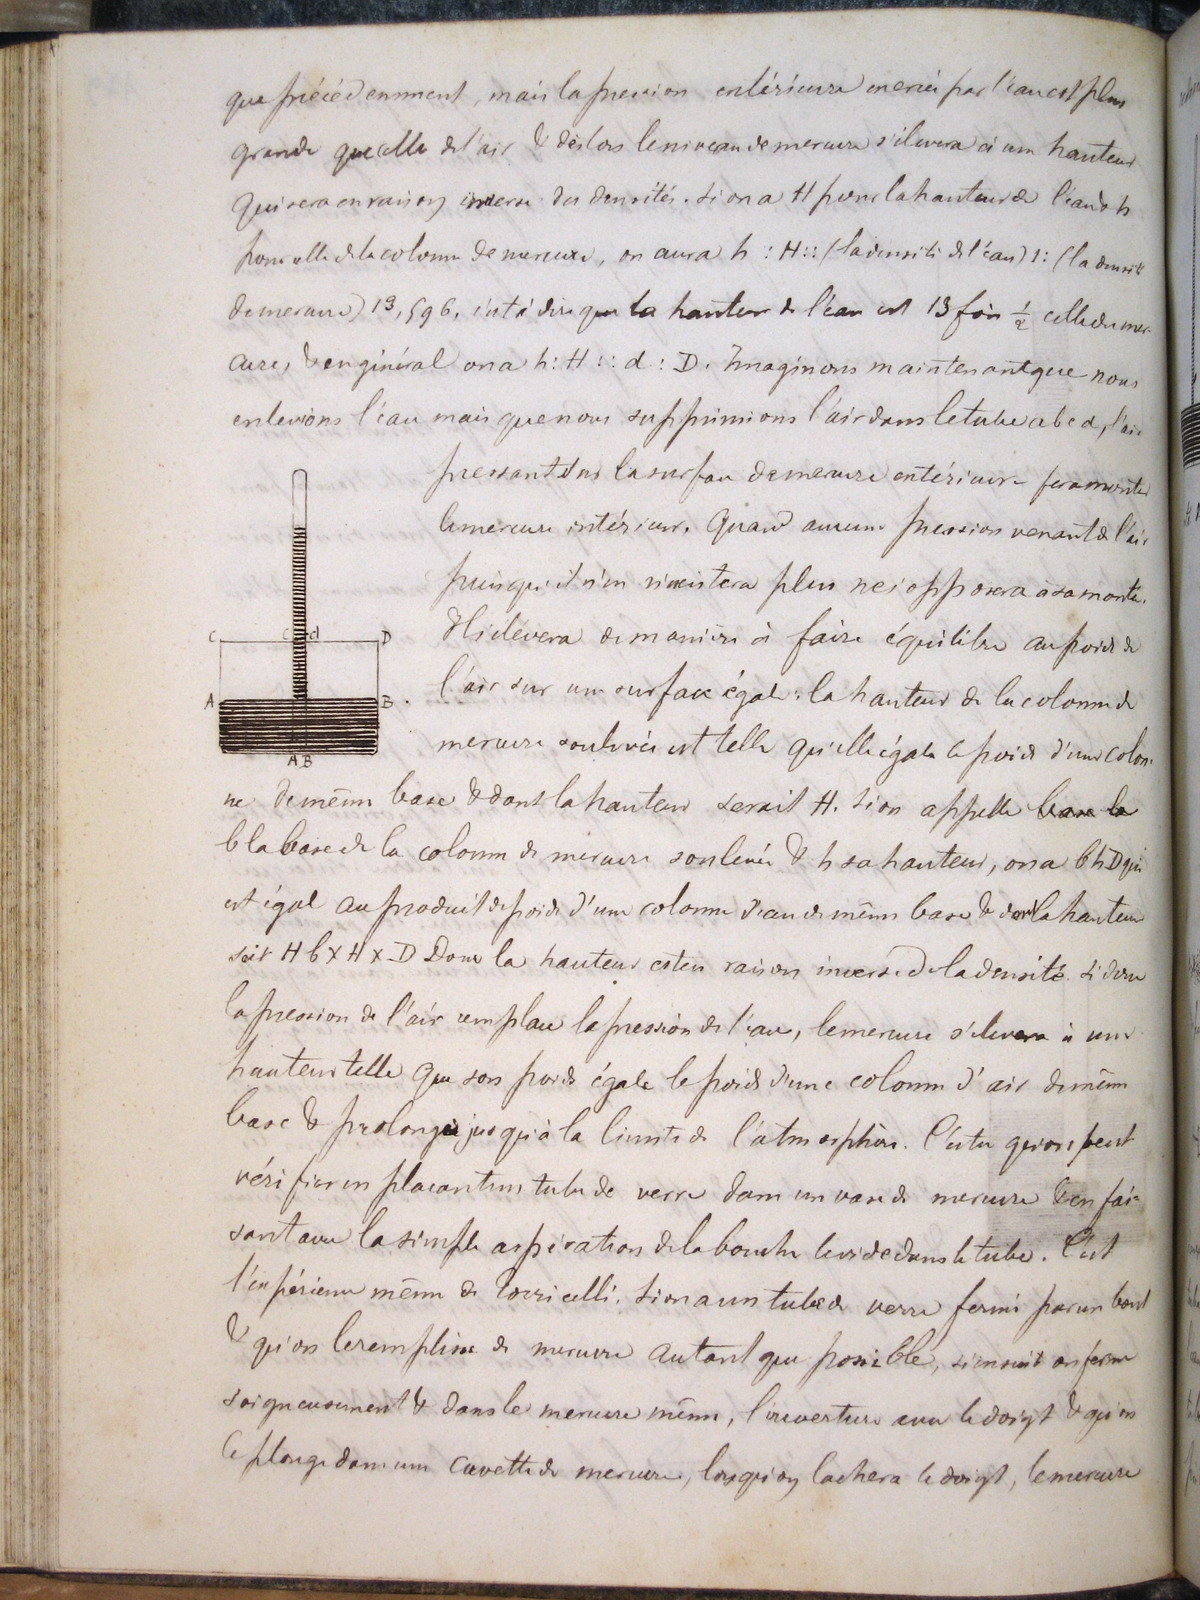 que précédemment, mais la pression extérieure exercée par l'eau est plus
grande que celle de l'air & dès lors le niveau de mercure s'élevera à une hauteur
qui sera en raison inverse des densités. Si on a H pour la hauteur de l'eau & h
pour celle de la colonne de mercure, on aura h : H :: (la densité de l'eau) 1 : (la densité
de mercure) 13,596, c'est à dire que la hauteur de l'eau est 13 fois ½ celle du mer-
cure, & en général on a h : H :: d : D. Imaginons maintenant que nous
enlevions l'eau mais que nous supprimions l'air dans le tube abcd, l'air
pressant sur la surface de mercure extérieure fera monter
le mercure intérieur. Quand aucune pression venant de l'air
puisqu'il n'en existera plus ne s'opposera à sa montée.
Il s'élèvera de manière à faire équilibre au poids de
l'air sur une surface égale. la hauteur de la colonne de
mercure soulevée est telle qu'elle égale le poids d'une colon-
ne de même base & dont la hauteur serait H. Si on appelle base la
b la base de la colonne de mercure soulevée & h sa hauteur, on a bhD qui
est égal au produit du poids d'une colonne d'eau de même base & dont la hauteur
soit H b x H x D Donc la hauteur est en raison inverse de la densité. Si donc
la pression de l'air remplace la pression de l'eau, le mercure s'élevera à une
hauteur telle que son poids égale le poids d'une colonne d'air de même
base & prolongée jusqu'à la limite de l'atmosphère. C'est ce qu'on peut
vérifier en plaçant un tube de verre dans un vase de mercure & en fai-
sant avec la simple aspiration de la bouche le vide dans le tube. C'est
l'expérience même de Torricelli. Si on a un tube de verre fermé par un bout
& qu'on le remplisse de mercure autant que possible, si ensuite on ferme
soigneusement & dans le mercure même, l'ouverture avec le doigt & qu'on
le plonge dans une cuvette de mercure, lorsqu'on lachera le doigt, le mercure
C c d D
A B
A B